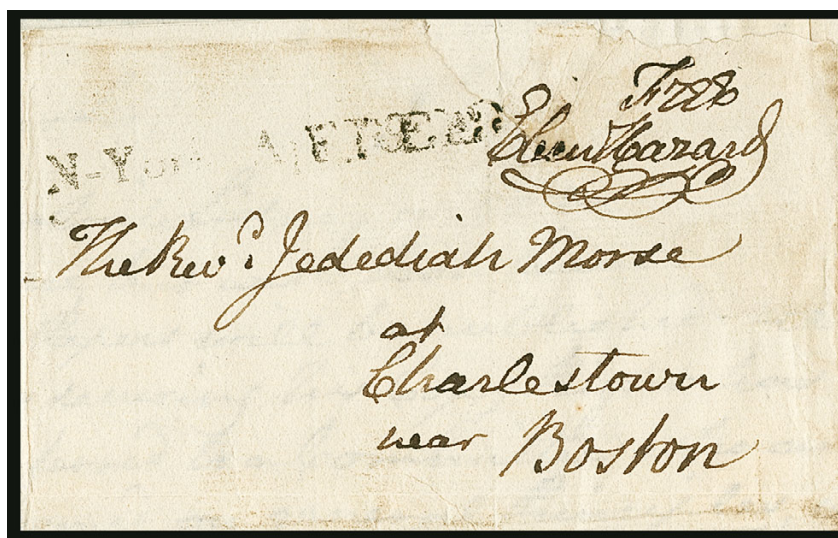 Free
Eben Hazard
N-York
The Revd. Jedediah Morse
at
Charlestown
near Boston